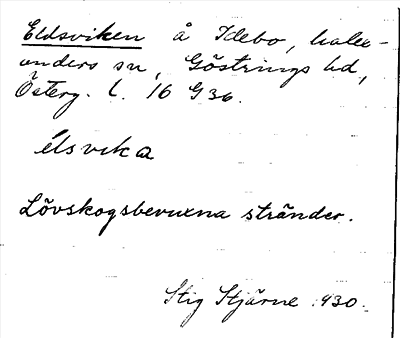 Eldsviken å Idebo,
anders sn, Göstrings hd,
Österg. l. 16 G 36.
élsvika
Lövskogsbevuxna stränder.
Stig Stjärne 1930.